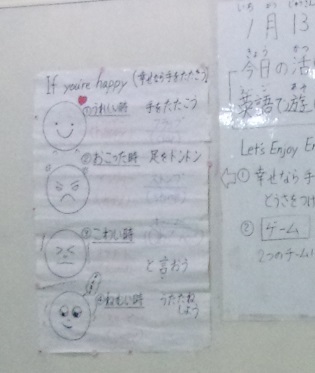 If you're happy (幸せなら手をたたこう)
①うれしい時 手をたたこう
②おこった時 足をドンドン
③こわい時
と言おう
④ねむい時 うたたね
しよう
1月13
きょう
今日の活
英語で遊
Let's Enjoy En
① 幸せなら手
どうさをつけ
② ゲーム
2つのチーム